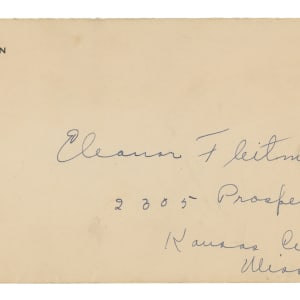 N
Eleanor Fleitm
2305 Prospe
Kansas Ci
Miss